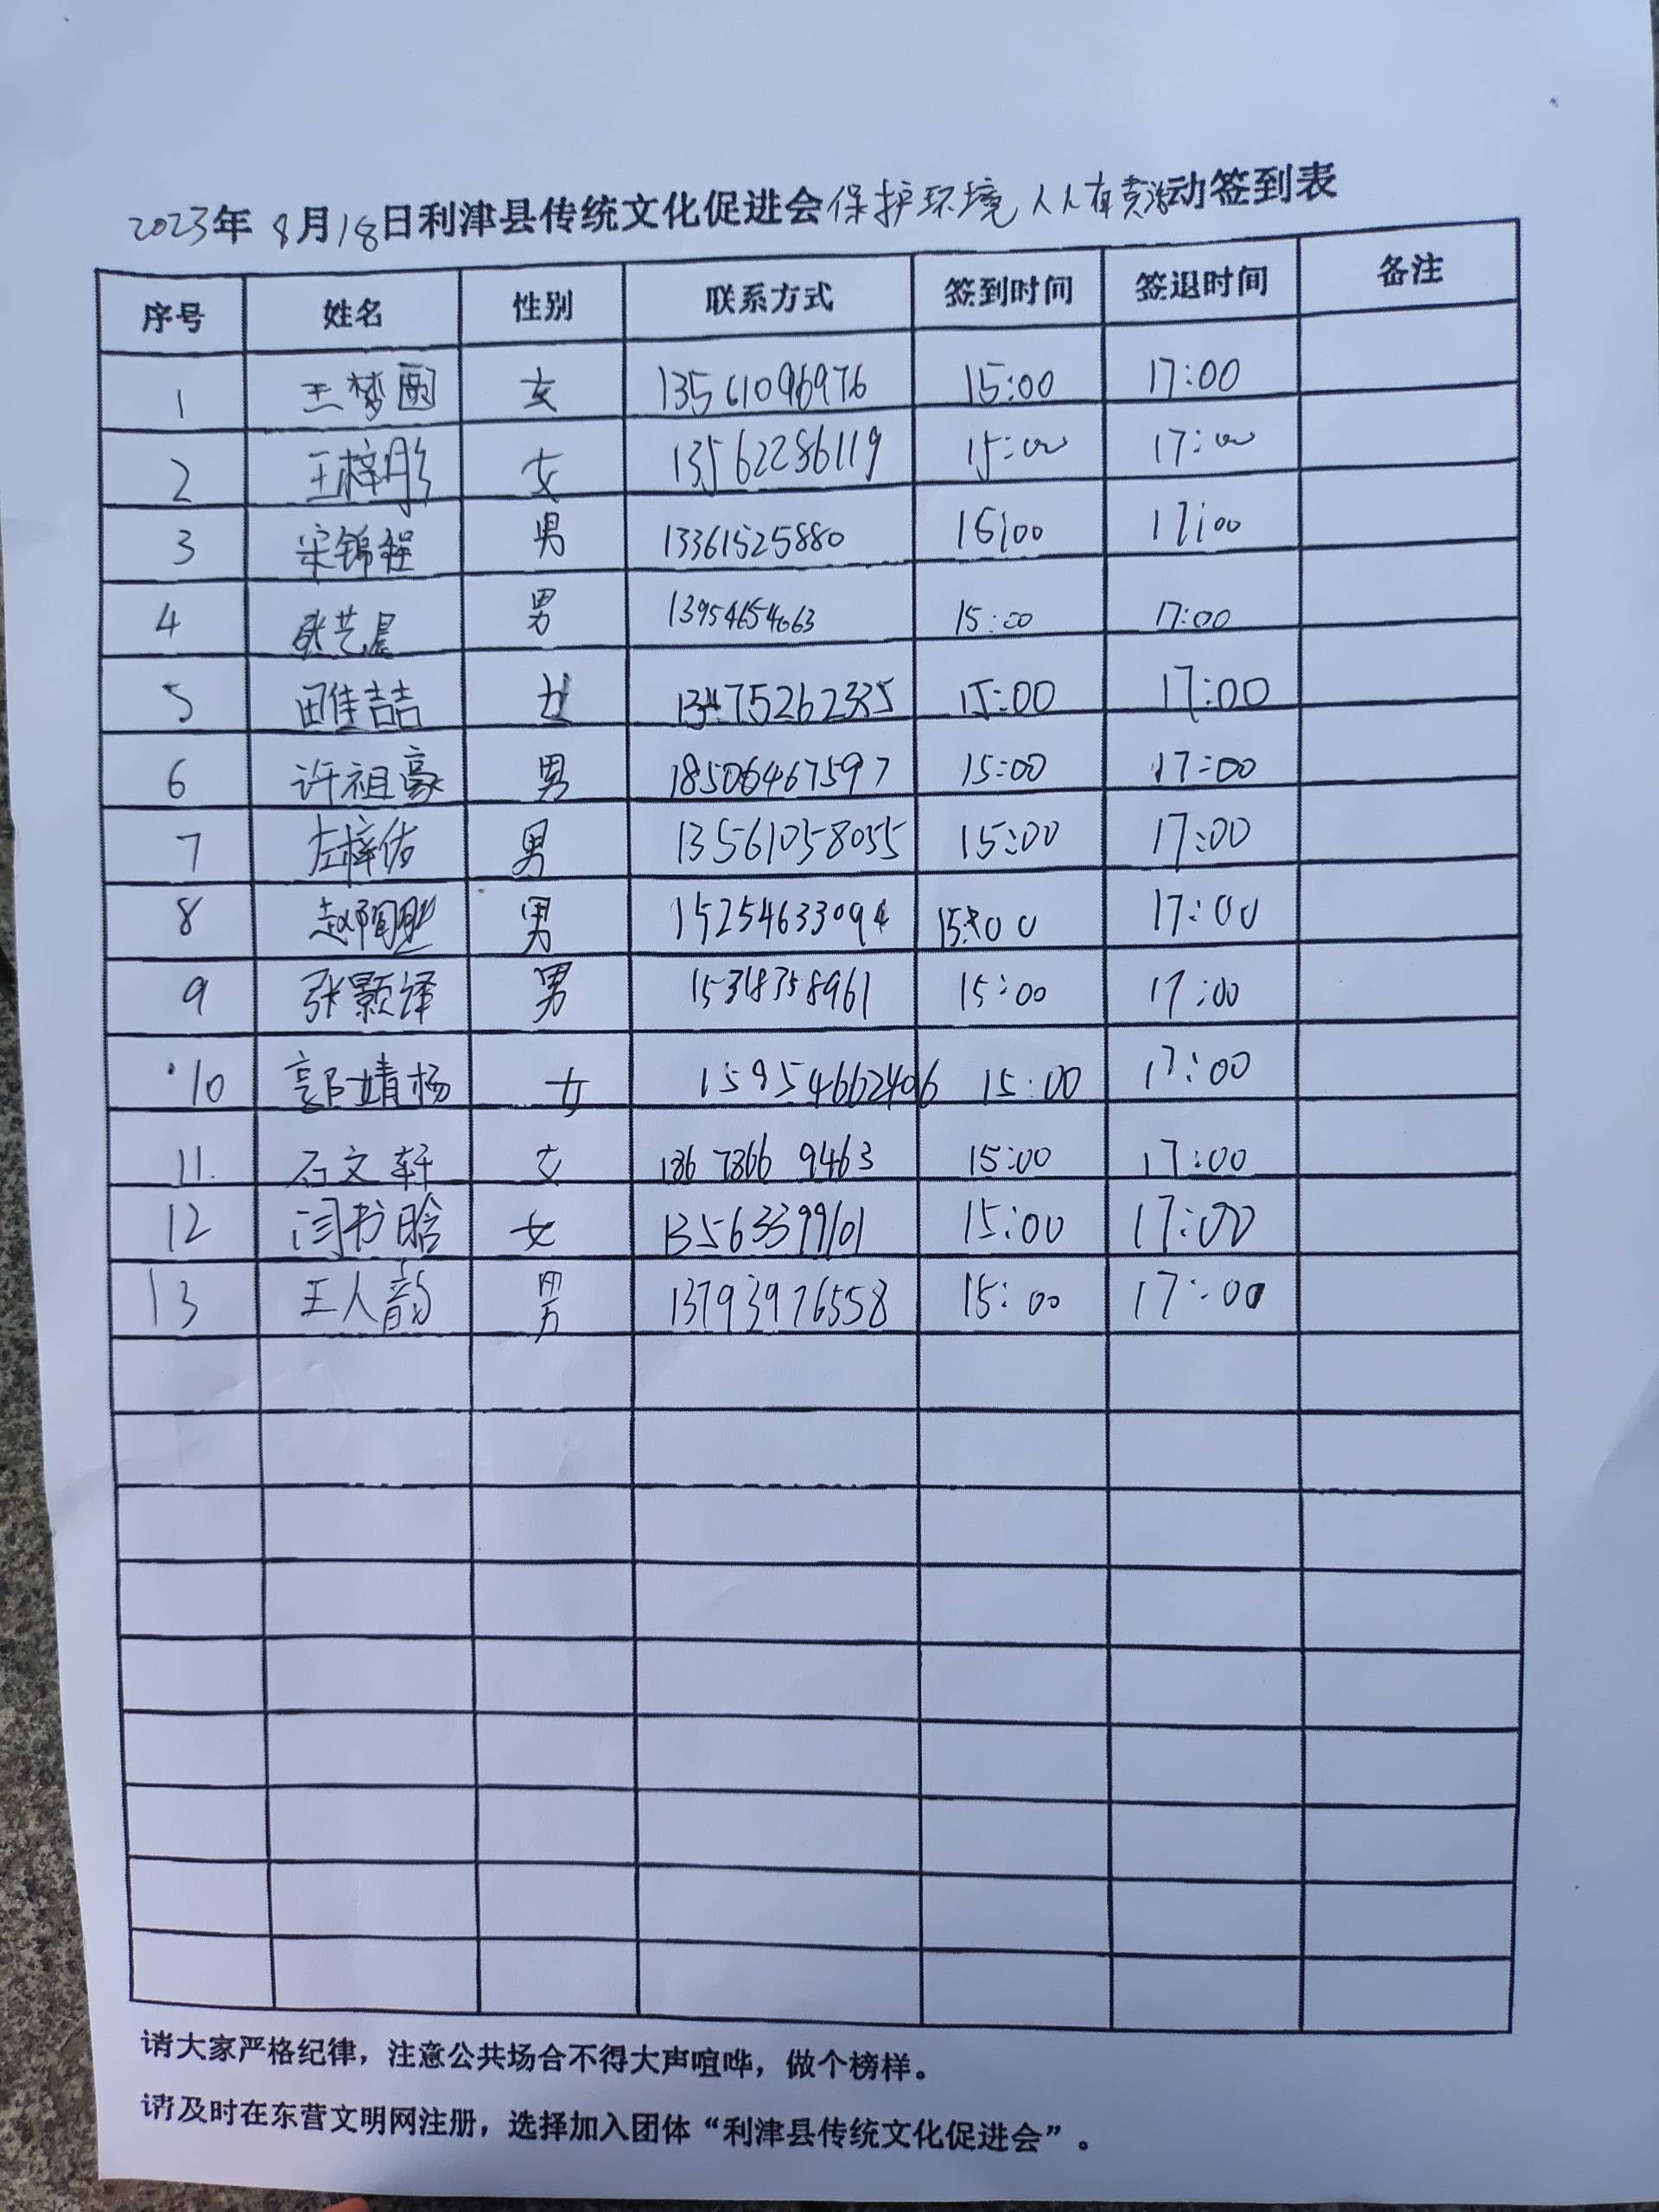 2023年 8月18日利津县传统文化促进会保护环境 人人有责活动签到表
序号 姓名 性别 联系方式 签到时间 签退时间 备注
1 王梦圆 女 13561096976 15:00 17:00
2 王梓彤 女 13562286119 15:00 17:00
3 宋锦程 男 13361525880 15:00 17:00
4 张艺晨 男 13954654063 15:00 17:00
5 田佳喆 女 13475262335 15:00 17:00
6 许祖豪 男 18506467597 15:00 17:00
7 左梓佑 男 13561058055 15:00 17:00
8 赵 男 15254633094 15:00 17:00
9 张颢译 男 15318358961 15:00 17:00
10 郭婧杨 女 15954662406 15:00 17:00
11. 石文轩 女 186 7866 9463 15:00 17:00
12 闫书晗 女 13563399101 15:00 17:00
13 王人韵 男 13793976558 15:00 17:00
请大家严格纪律，注意公共场合不得大声喧哗，做个榜样。
请及时在东营文明网注册，选择加入团体“利津县传统文化促进会”。